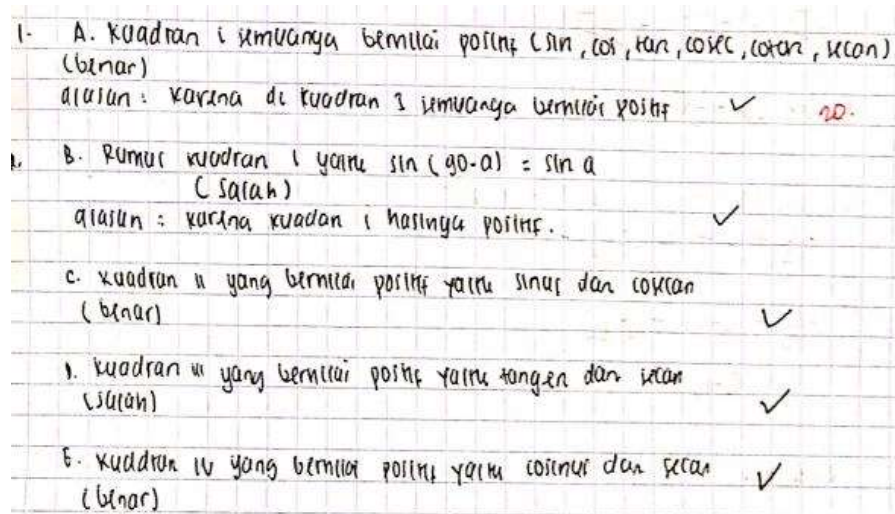 1. A. Kuadran i semuanya bernilai positif (sin, cos, tan, cosec, cotan, secan)
(benar)
alasan : karena di kuadran I semuanya bernilai positif ✓ 20.
B. Rumus kuadran I yaitu sin (90-a) = sin a
(salah)
alasan : karena kuadan i hasinya positif. ✓
C. Kuadran II yang bernilai positif yaitu sinus dan cosecan
(benar) ✓
D. Kuadran III yang bernilai positif yaitu tangen dan secan
(salah) ✓
E. Kuadran IV yang bernilai positif yaitu cosinus dan secan ✓
(benar)